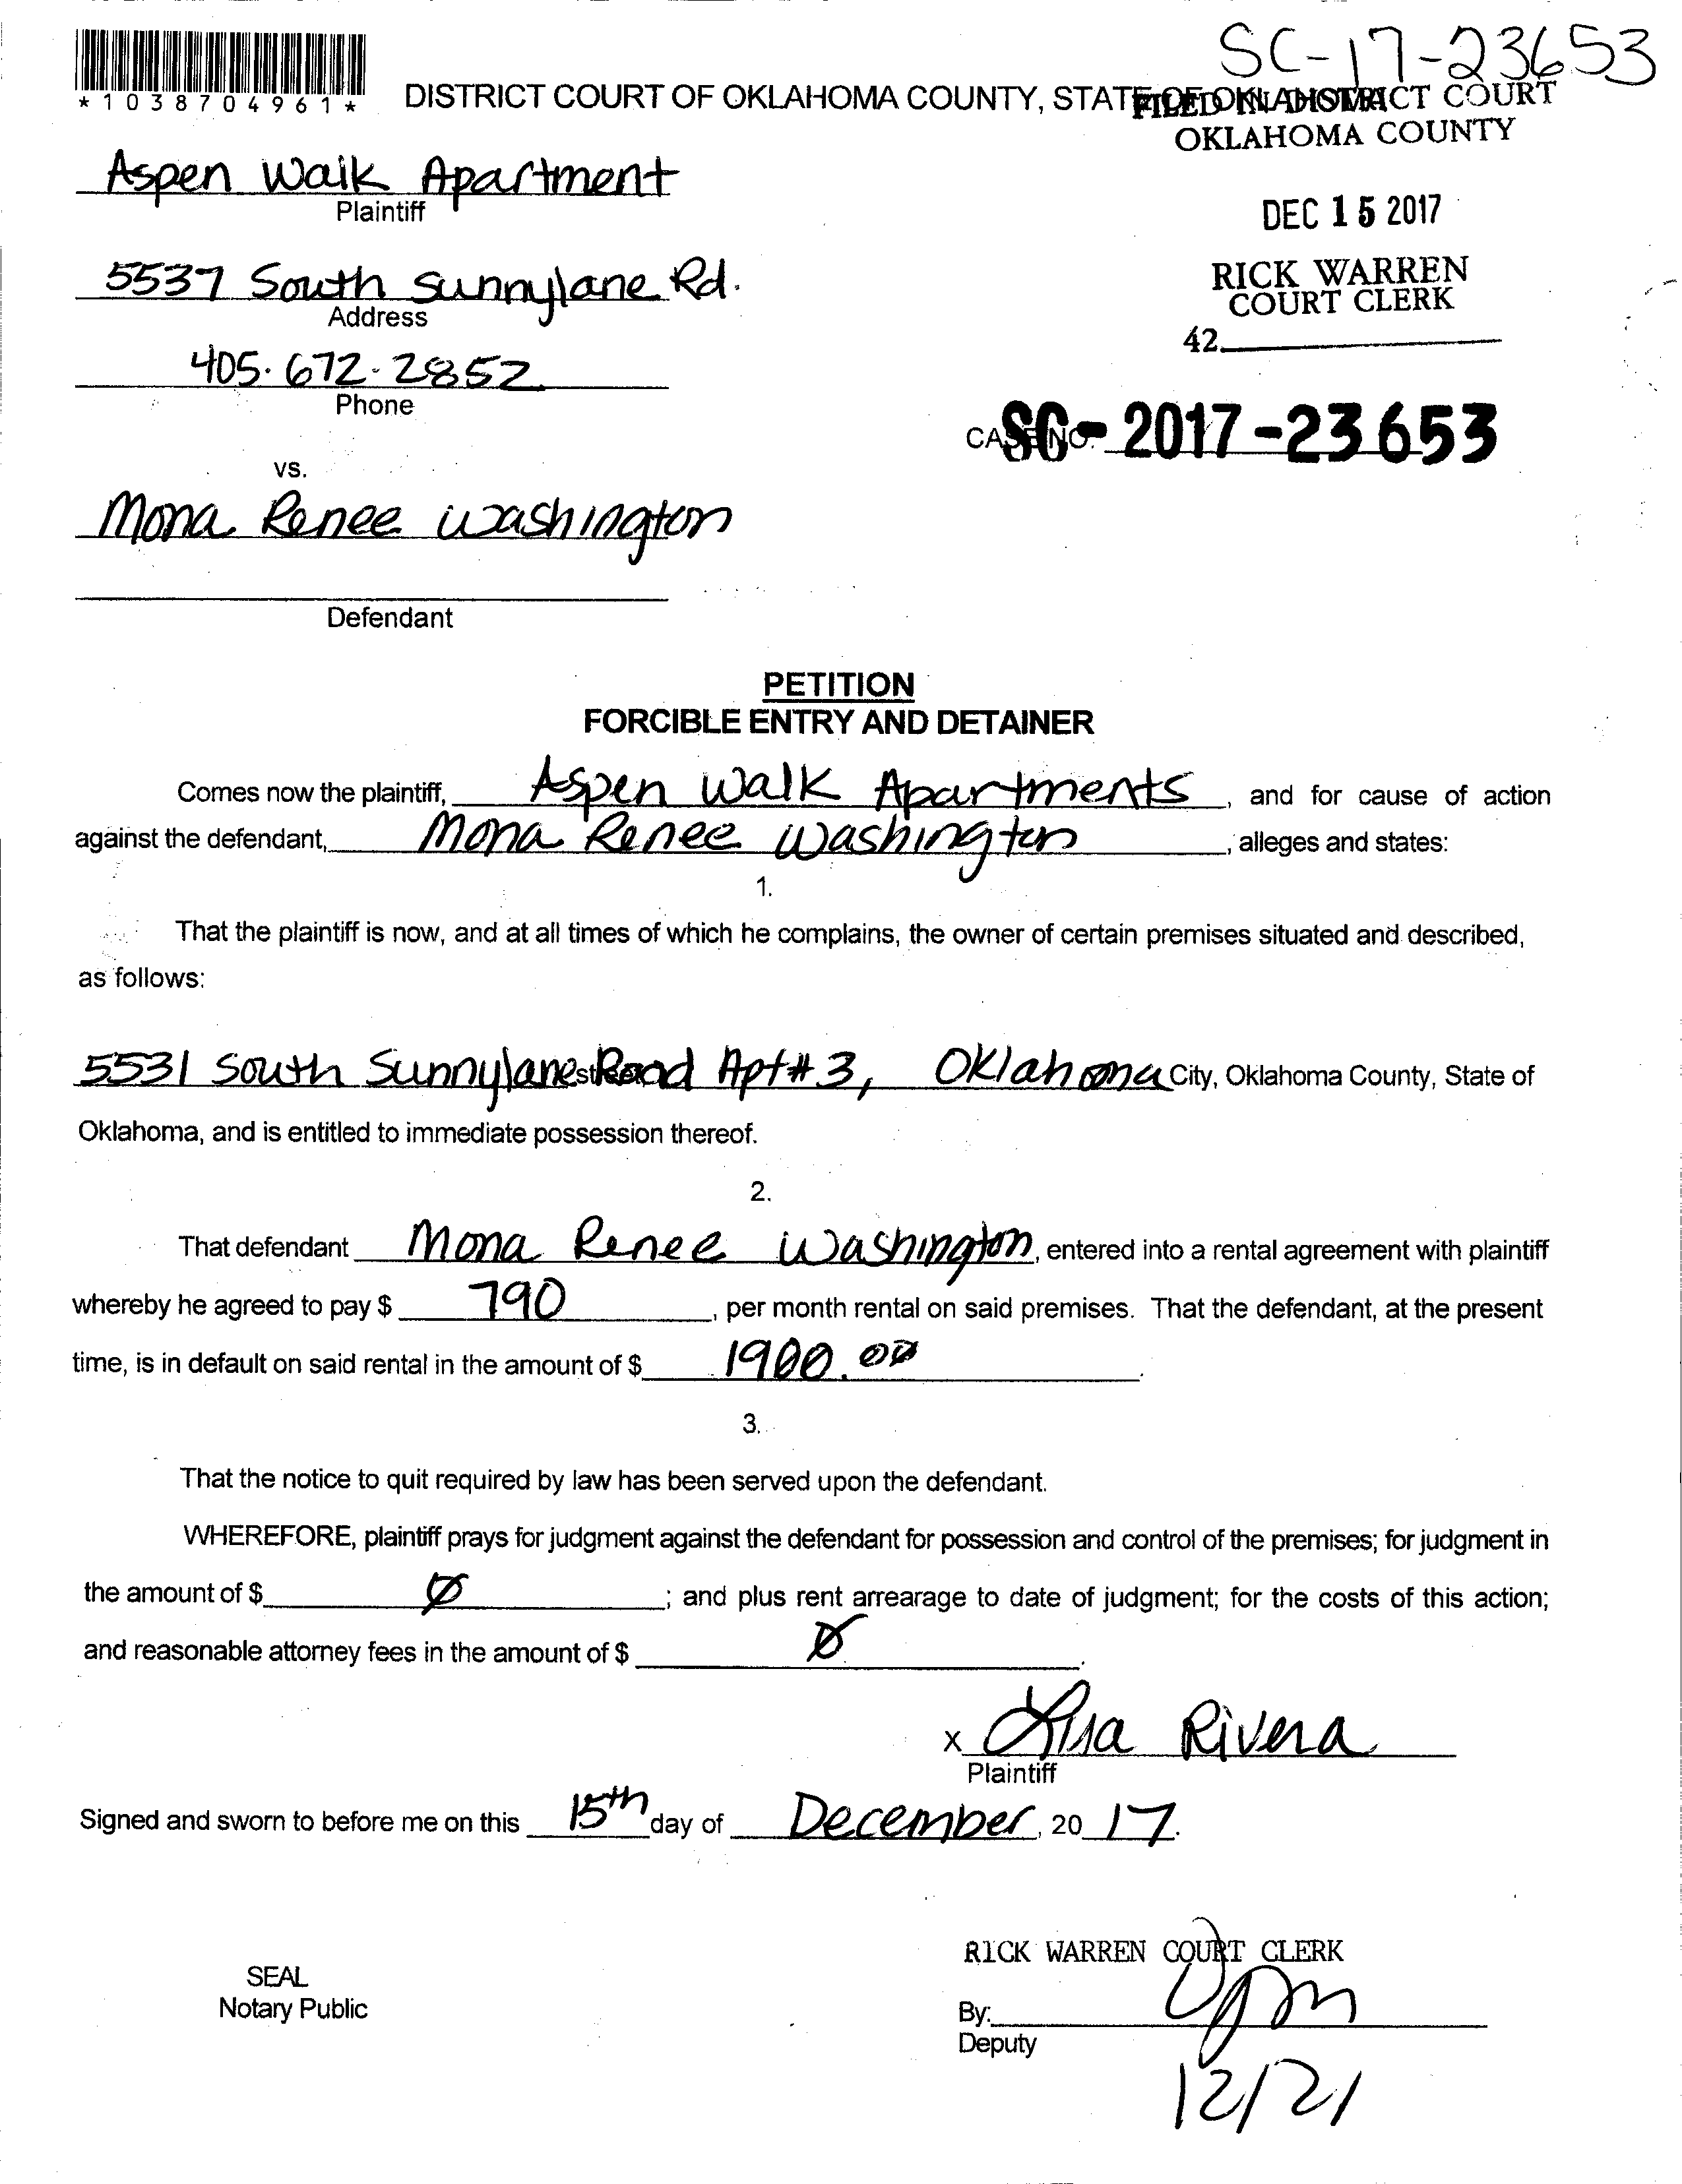 SC-17-23653
*1038704961*
DISTRICT COURT OF OKLAHOMA COUNTY, STATE OF OKLAHOMA
FILED IN DISTRICT COURT
OKLAHOMA COUNTY
Aspen Walk Apartment
Plaintiff
DEC 15 2017
5537 South Sunnylane Rd.
Address
RICK WARREN
COURT CLERK
42
405.672-2852
Phone
CASE NO. SC-2017-23653
vs.
Mona Renee Washington
Defendant
PETITION
FORCIBLE ENTRY AND DETAINER
Comes now the plaintiff, Aspen Walk Apartments, and for cause of action
against the defendant, Mona Renee Washington, alleges and states:
1.
That the plaintiff is now, and at all times of which he complains, the owner of certain premises situated and described,
as follows:
5531 South Sunnylane Road Apt# 3, Oklahoma City, Oklahoma County, State of
Oklahoma, and is entitled to immediate possession thereof.
2.
That defendant Mona Renee Washington, entered into a rental agreement with plaintiff
whereby he agreed to pay $ 790, per month rental on said premises. That the defendant, at the present
time, is in default on said rental in the amount of $ 1900.00.
3.
That the notice to quit required by law has been served upon the defendant.
WHEREFORE, plaintiff prays for judgment against the defendant for possession and control of the premises; for judgment in
the amount of $ Ø; and plus rent arrearage to date of judgment; for the costs of this action;
and reasonable attorney fees in the amount of $ Ø.
x Lisa Rivera
Plaintiff
Signed and sworn to before me on this 15th day of December, 2017.
RICK WARREN COURT CLERK
SEAL
Notary Public
By:
Deputy
12/21